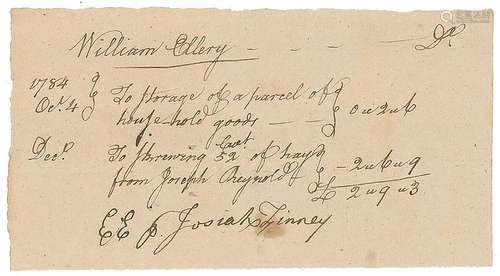 William Ellery - - - Dr
1784
Oct. 4 To storage of a parcel of
house-hold goods - 0 " 2 " 6
Decr. To screwing 52 Cwt of hay
from Joseph Reynolds - 2 " 6 " 9
£ 2 " 9 " 3
E E p. Josiah Finney